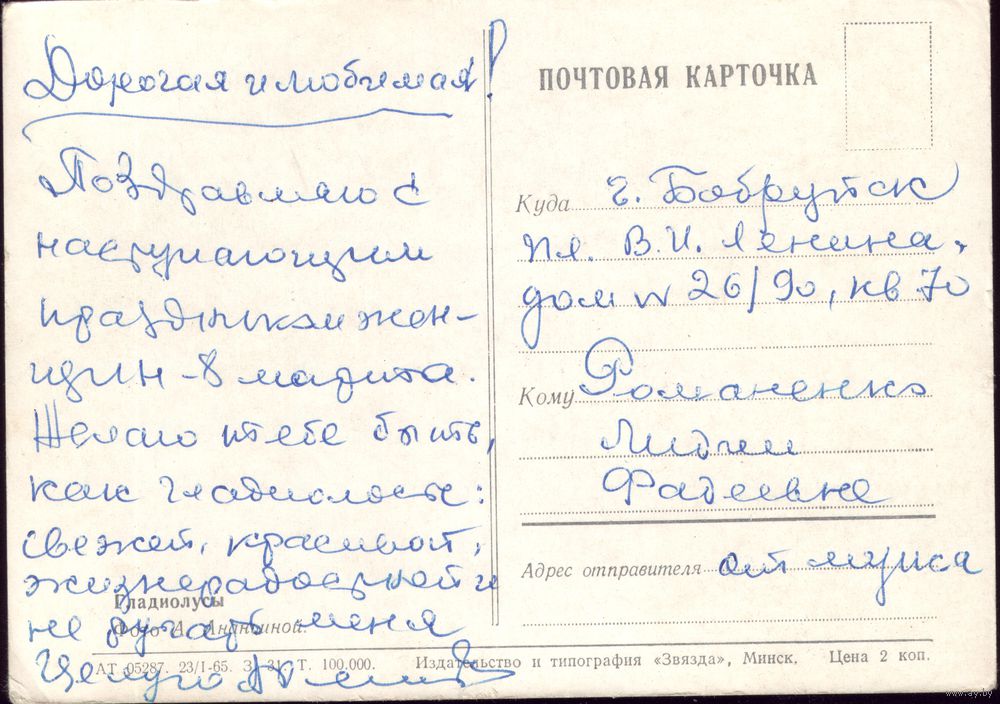 Дорогая и любимая!
Поздравляю с
наступающим
праздником жен-
щин - 8 марта.
Желаю тебе быть,
как гладиолусы:
свежей, красивой,
жизнерадостной и
не ругать меня
Целую
Гладиолусы
Фото А. Ананьиной.
ПОЧТОВАЯ КАРТОЧКА
Куда г. Бобруйск
пл. В.И. Ленина,
дом N 26/90, кв 70
Кому Романенко
Лидии
Фадеевне
Адрес отправителя от мужа
АТ 05287. 23/I-65. З. 31. Т. 100.000. Издательство и типография «Звязда», Минск. Цена 2 коп.
www.ay.by